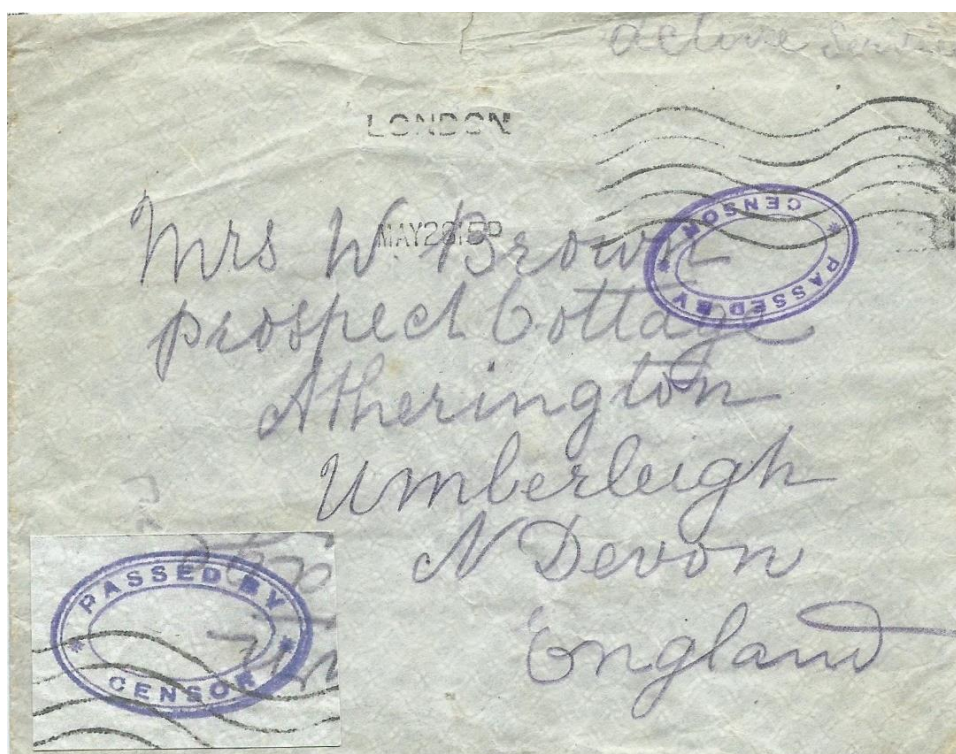 active Service
LONDON
MAY 28 18
CENSOR
PASSED BY
Mrs W Brown
prospect Cottage
Atherington
Umberleigh
N Devon
England
PASSED BY
CENSOR